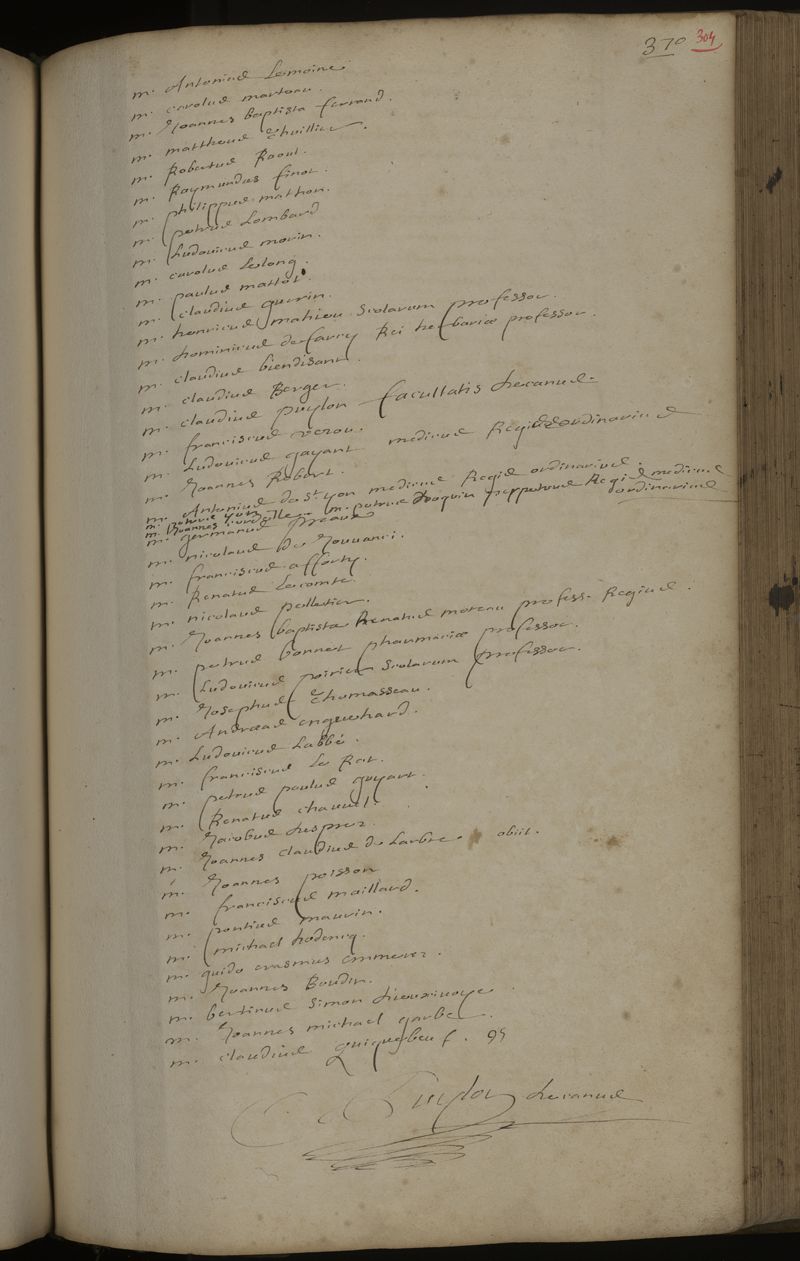 370 304
m. Antonius Lemoine
m. carolus marteau.
m. Joannes baptista ferrand.
m. mattheus Thuillier.
m. Robertus Raoul.
m. Raymundus finot.
m. philippus matthon.
m. petrus Lombard
m. Ludovicus morin.
m. carolus Lelong.
m. paulus mattot
m. claudius guerin.
m. henricus mahieu scolarum professor.
m. Dominicus de farcy Rei herbariæ professor.
m. claudius biendisant.
m. claudius Berger.
m. claudius puylon facultatis Decanus.
m. franciscus verou.
m. Ludovicus gayant medicus Regis ordinarius
m. Joannes Robert.
m. Antonius de St yon medicus Regis ordinarius.
m. petrus yon
m. Joannes m. petrus Daquin perpetuus Regis medicus
m. germanus preaux ordinarius
m. nicolaus de Jouvanci.
m. franciscus afforty.
m. Renatus Lecomte.
m. nicolaus pelletier.
m. Joannes baptista Renatus moreau profess. Regius.
m. petrus bonnet pharmaciæ professor.
m. Ludovicus poirier scolarum professor.
m. Josephus Thomasseau.
m. Andreas enguehard.
m. Ludovicus Labbé.
m. franciscus Le Rat.
m. petrus paulus guyart.
m. Renatus chauvel.
m. Jacobus Desprez.
m. Joannes claudius de Larbre. obiit.
m. Joannes poisson
m. franciscus maillard.
m. pontius maurin.
m. michael hodencq.
m. guido erasmus emmerez.
m. Joannes Boudin.
m. bertinus simon Dieuxivoye.
m. Joannes michael garbe.
m. claudius Quiquebeuf. 95
C. Puylon Decanus